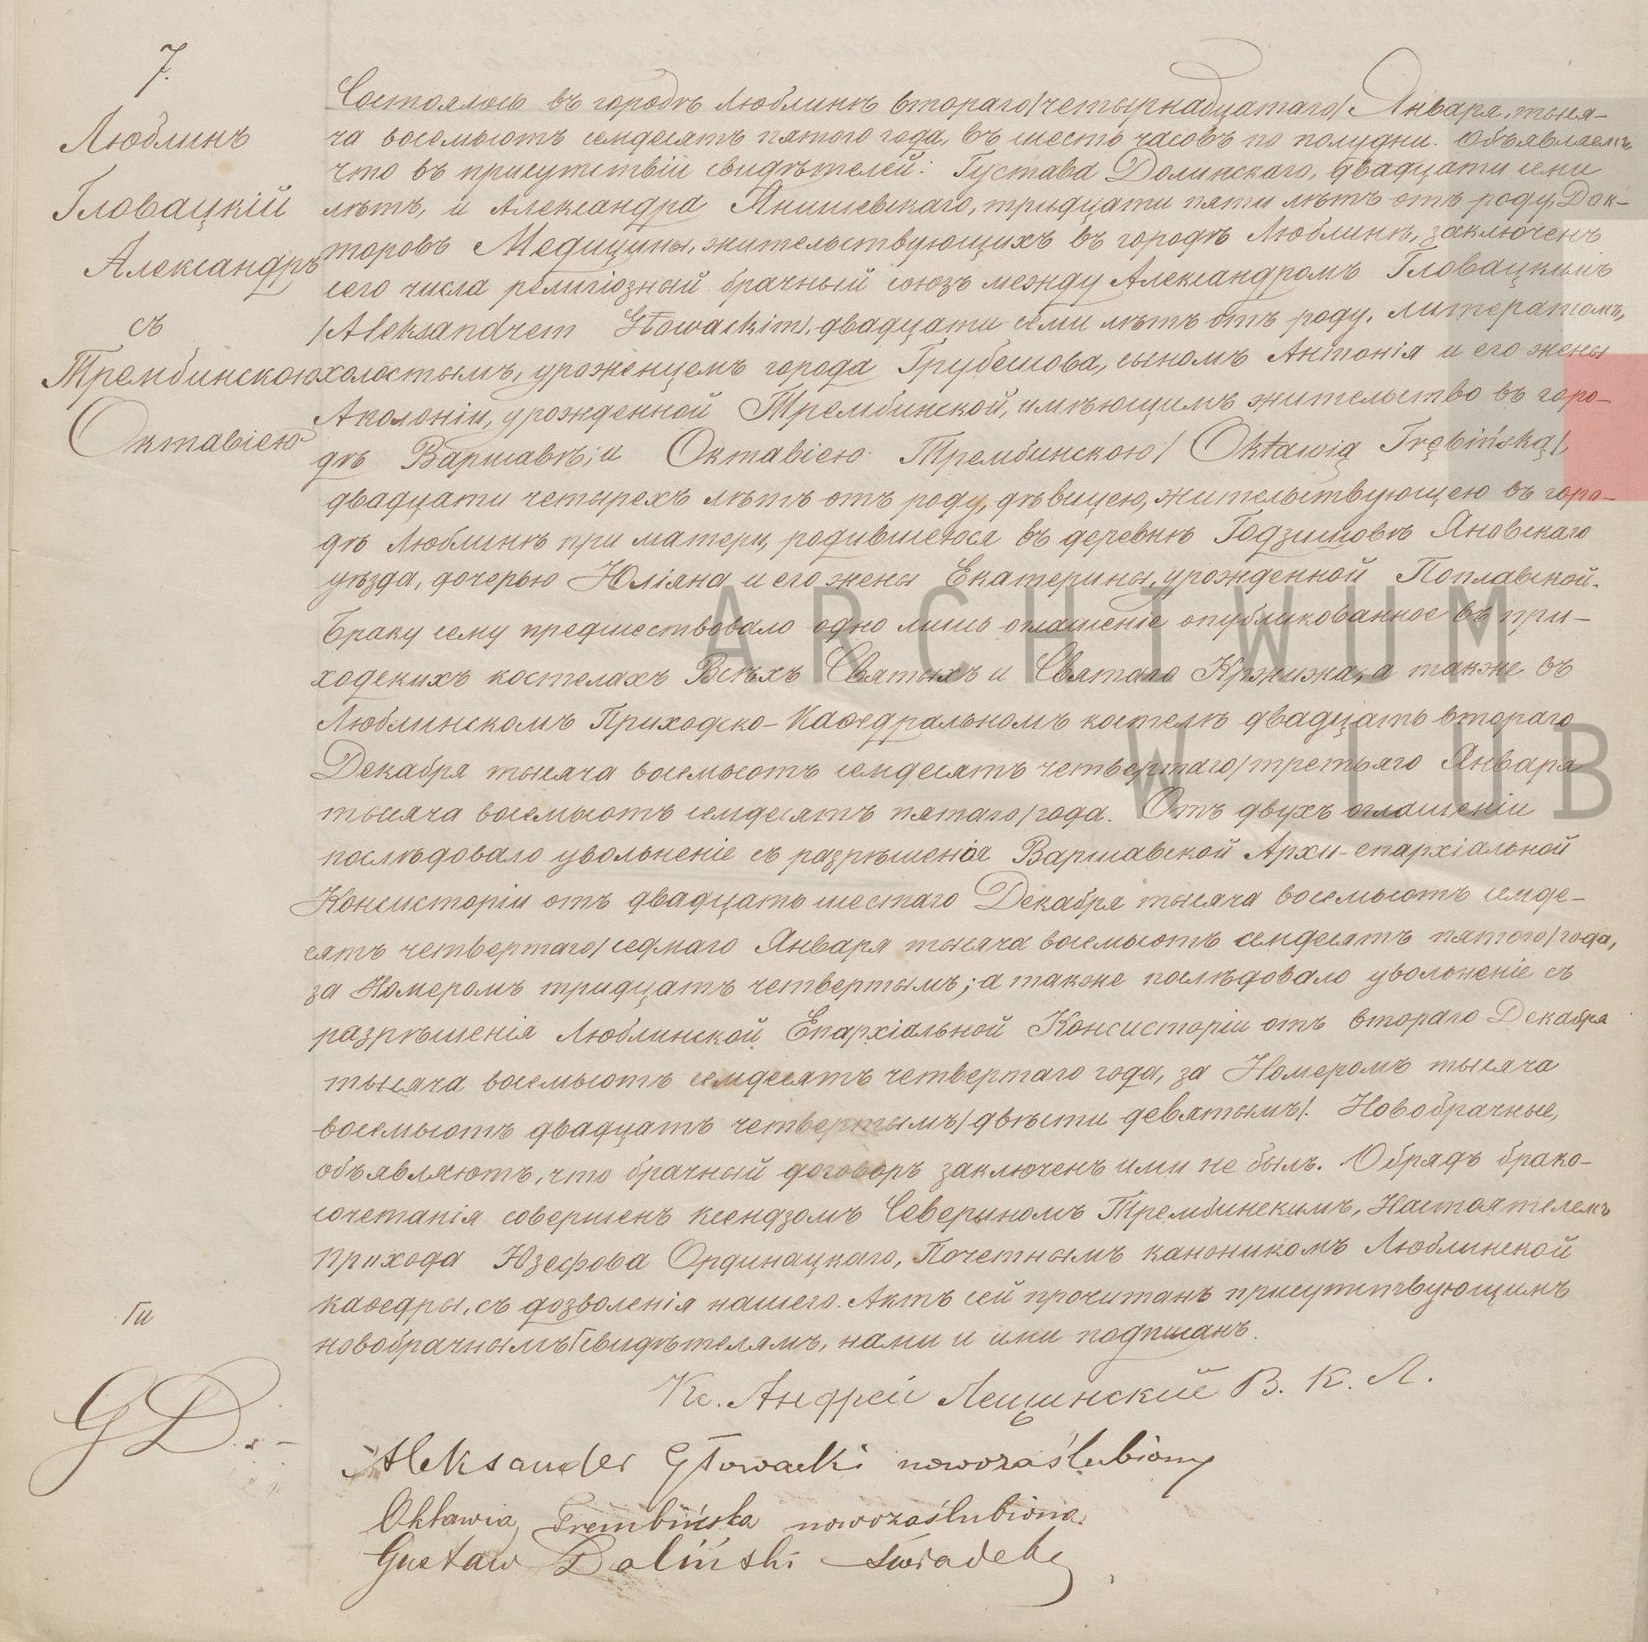 7.
Люблинъ
Гловацкій
Александръ
съ
Трембинскою
Октавіею
Состоялось въ городѣ Люблинѣ втораго/четырнадцатаго/ Января, тыся-
ча восемьсотъ семдесятъ пятого года, въ шесть часовъ по полудни. Объявляемъ
что въ присутствіи свидѣтелей: Густава Долинскаго, двадцати семи
лѣтъ, и Александра Янишевскаго, тридцати пяти лѣтъ отъ роду, Док-
торовъ Медицины, жительствующихъ въ городѣ Люблинѣ, заключенъ
сего числа религіозный брачный союзъ между Александромъ Гловацкимъ
/Aleksandrem Głowackim/, двадцати семи лѣтъ отъ роду, литератомъ,
холостымъ, уроженцемъ города Грубешова, сыномъ Антонія и его жены
Аполоніи, урожденной Трембинской, имѣющимъ жительство въ горо-
дѣ Варшавѣ; и Октавіею Трембинскою/ Oktawią Trębińską/
двадцати четырехъ лѣтъ отъ роду, дѣвицею, жительствующею въ горо-
дѣ Люблинѣ при матери, родившеюся въ деревнѣ Годзишовѣ Яновскаго
уѣзда, дочерью Юліяна и его жены Екатерины, урожденной Поплавской.
Браку сему предшествовало одно лишь оглашеніе опубликованное въ при-
ходскихъ костелахъ Всѣхъ Святыхъ и Святаго Кржижа, а также въ
Люблинскомъ Приходско-Каѳедральномъ костелѣ двадцать втораго
Декабря тысяча восемьсотъ семдесятъ четвертаго/третьяго Января
тысяча восемьсотъ семдесятъ пятаго/года. Отъ двухъ оглашеніи
послѣдовало увольненіе съ разрѣшенія Варшавской Архи-епархіальной
Консисторіи отъ двадцать шестаго Декабря тысяча восемьсотъ семде-
сятъ четвертаго/седмаго Января тысяча восемьсотъ семдесятъ пятого/года,
за Номеромъ тридцать четвертымъ; а также послѣдовало увольненіе съ
разрѣшенія Люблинской Епархіальной Консисторіи отъ втораго Декабря
тысяча восемьсотъ семдесятъ четвертаго года, за Номеромъ тысяча
восемьсотъ двадцать четвертымъ/двѣсти девятымъ/. Новобрачные,
объявляютъ, что брачный договоръ заключенъ ими не былъ. Обрядъ брако-
сочетанія совершенъ ксендзомъ Севериномъ Трембинскимъ, Настоятелемъ
Прихода Юзефова Ординацкаго, Почетнымъ каноникомъ Люблинской
каѳедры, съ дозволенія нашего. Актъ сей прочитанъ присутствующимъ
новобрачнымъ Γ свидѣтелямъ, нами и ими подписанъ.
Γи
GD.
Кс. Андрей Лещинскій В. К. Л.
Aleksander Głowacki nowozaślubiony
Oktawia Trembińska nowozaślubiona
Gustaw Doliński świadek
ARCHIWUM
W LUB